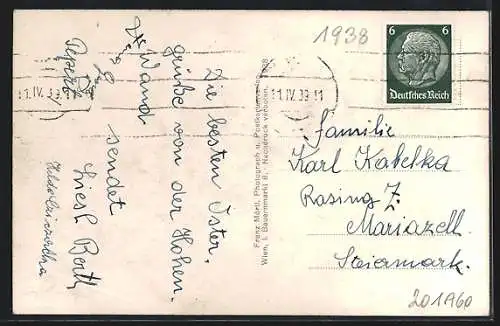 Die besten Oster.
grüße von der Hohen.
Wand
sendet
Liesl Roth
Pepert
Franz Mörtl, Photograph u. Postkartenverlag
Wien, I. Bauernmarkt 8. Nachdruck verboten. 1938
1938
11.IV.39.11
11.IV.39.11
6 6
Deutsches Reich
Familie
Karl Kabelka
Rasing 7.
Mariazell
Steiermark.
201A60